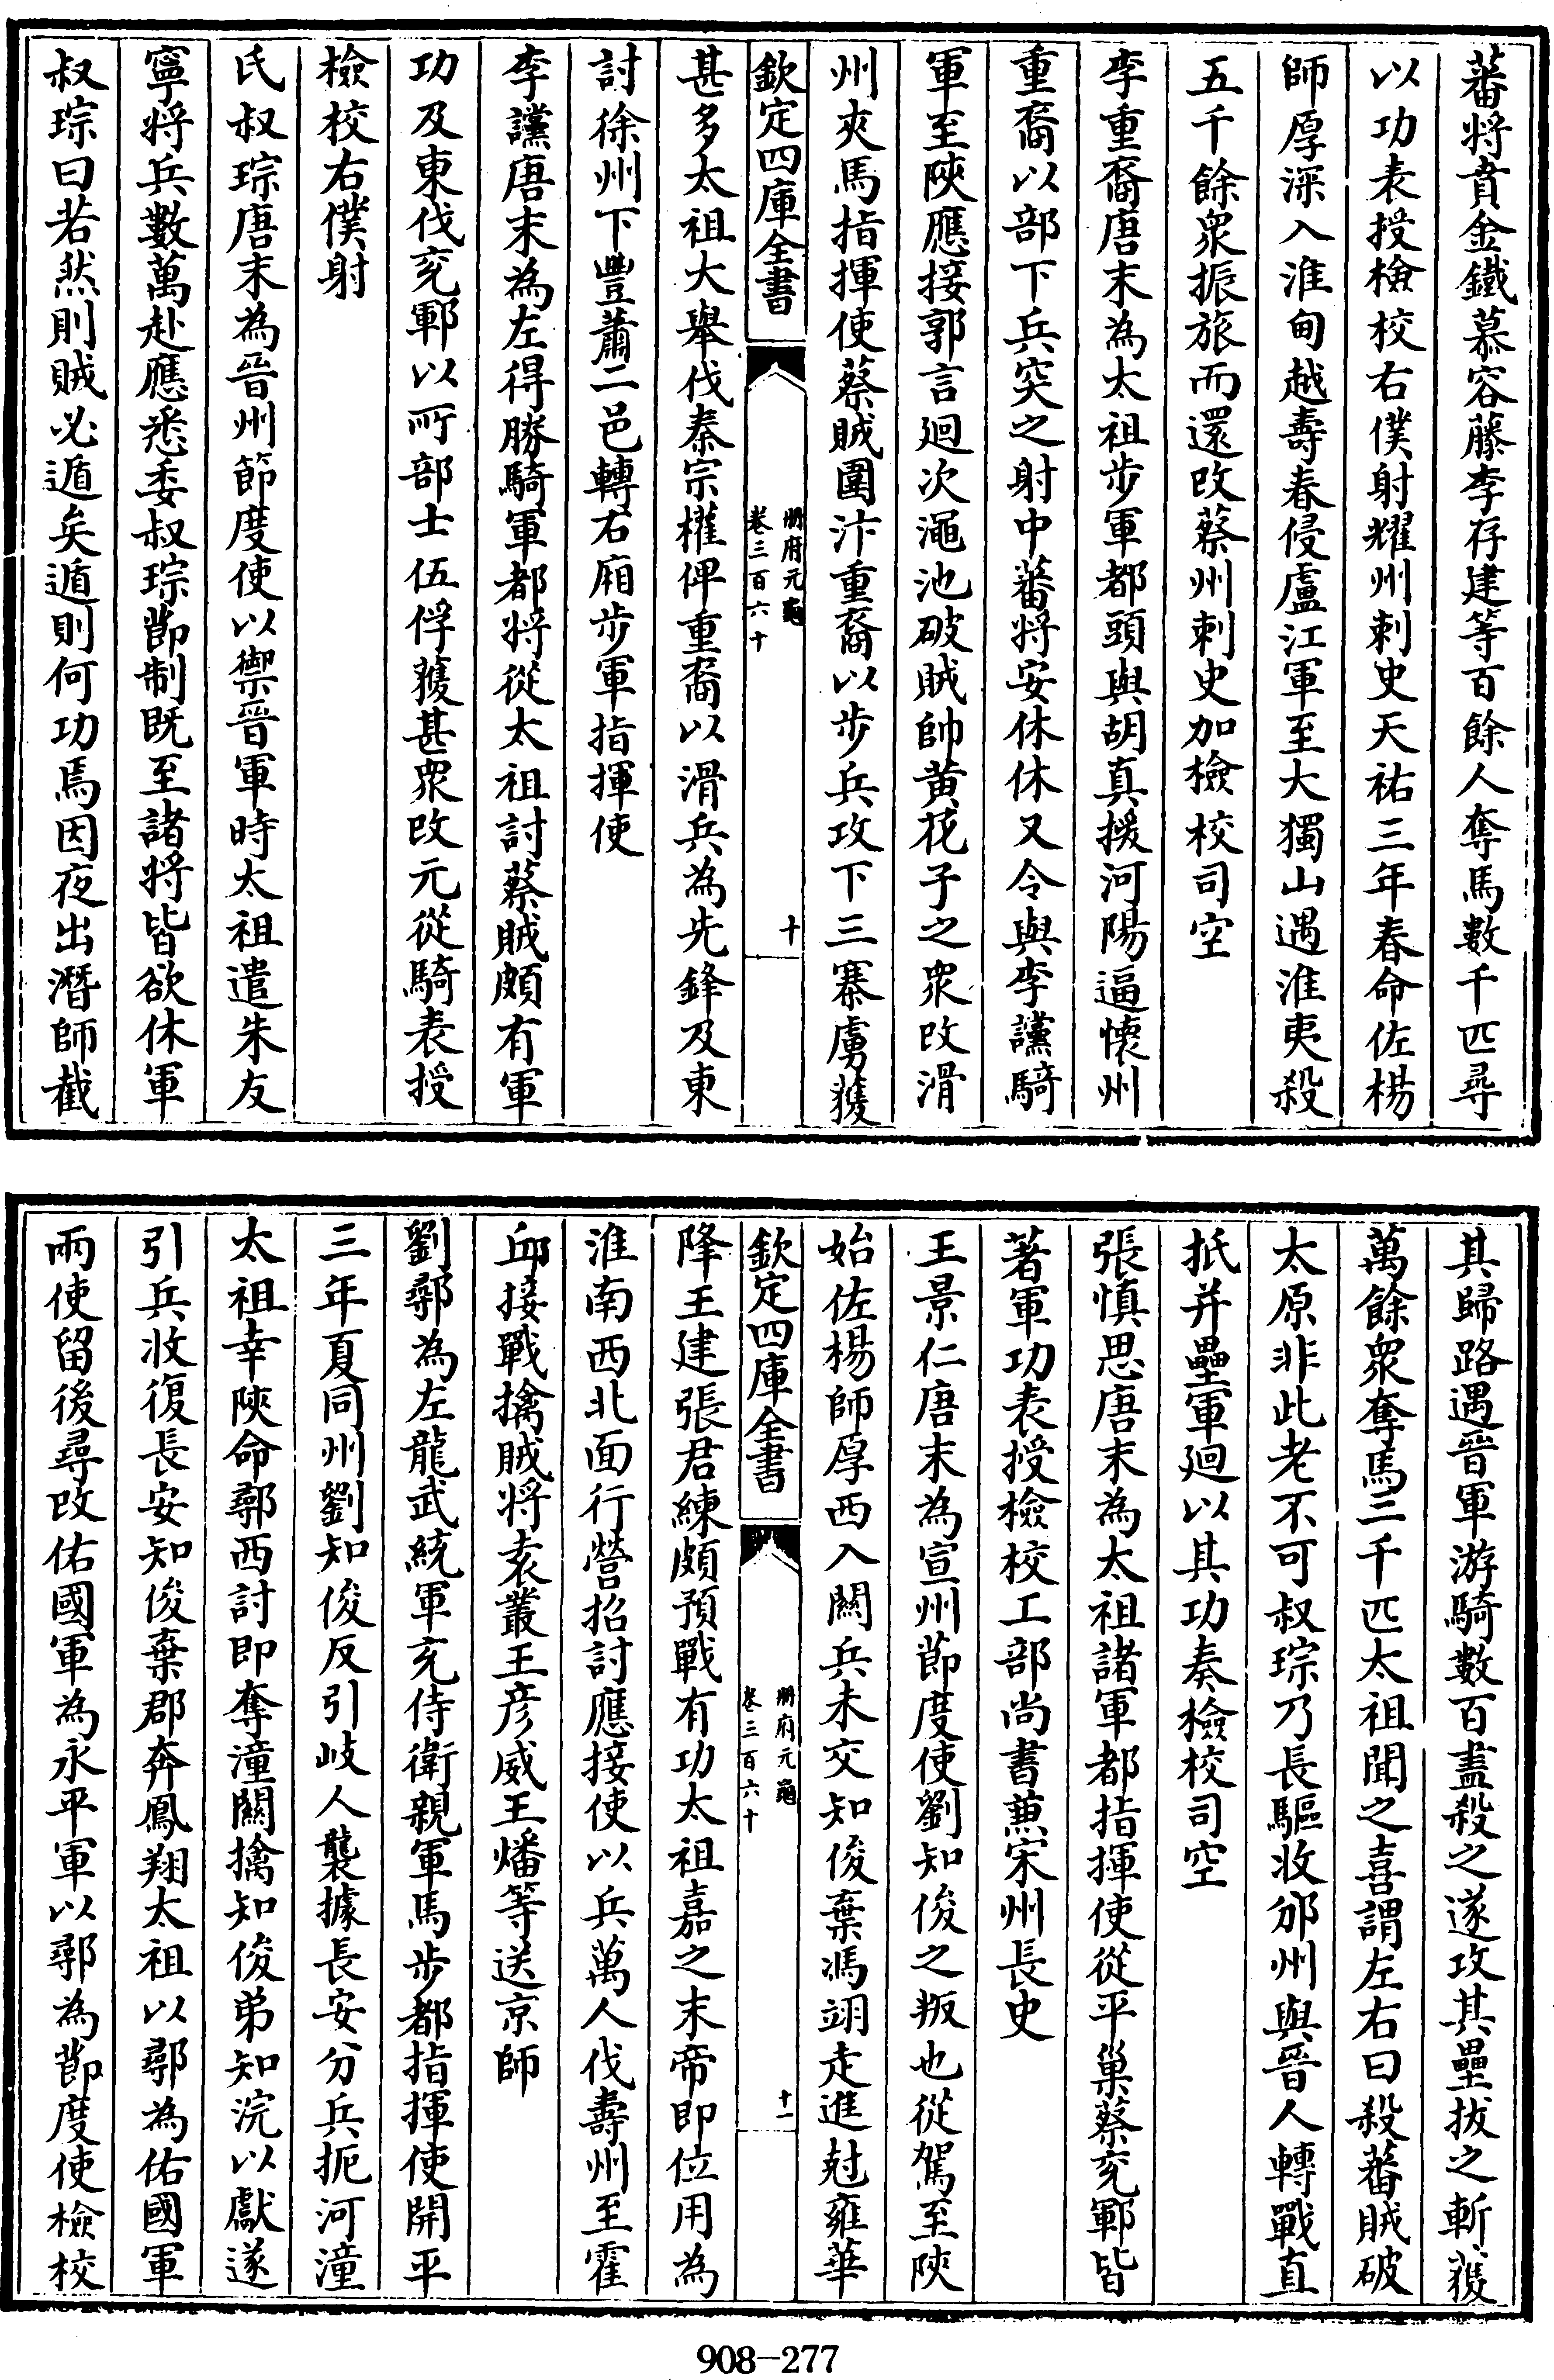 蕃將賁金鐵慕容藤李存建等百餘人奪馬數千匹尋
以功表授檢校右僕射耀州刺史天祐三年春命佐楊
師厚深入淮甸越壽春侵盧江軍至大獨山遇淮夷殺
五千餘衆振旅而還改蔡州刺史加檢校司空
李重裔唐末為太祖步軍都頭與胡真援河陽逼懷州
重裔以部下兵突之射中蕃將安休休又令與李讜騎
軍至陜應接郭言廻次澠池破賊帥黄花子之衆改滑
州夾馬指揮使蔡賊圍汴重裔以步兵攻下三寨虜獲
欽定四庫全書
冊府元龜
卷三百六十
十
甚多太祖大舉伐秦宗權俾重裔以滑兵為先鋒及東
討徐州下豐蕭二邑轉右廂步軍指揮使
李讜唐末為左得勝騎軍都將從太祖討蔡賊頗有軍
功及東伐兖鄆以所部士伍俘獲甚衆改元從騎表授
檢校右僕射
氏叔琮唐末為晉州節度使以禦晉軍時太祖遣朱友
寧將兵數萬赴應悉委叔琮節制既至諸將皆欲休軍
叔琮曰若然則賊必遁矣遁則何功焉因夜出潛師截
其歸路遇晉軍游騎數百盡殺之遂攻其壘拔之斬獲
萬餘衆奪馬三千匹太祖聞之喜謂左右曰殺蕃賊破
太原非此老不可叔琮乃長驅收邠州與晉人轉戰直
抵并壘軍廻以其功奏檢校司空
張慎思唐末為太祖諸軍都指揮使從平巢蔡兖鄆皆
著軍功表授檢校工部尚書兼宋州長史
王景仁唐末為宣州節度使劉知俊之叛也從駕至陜
始佐楊師厚西入關兵未交知俊棄馮翊走進尅雍華
欽定四庫全書
冊府元龜
卷三百六十
十一
降王建張君練頗預戰有功太祖嘉之末帝即位用為
淮南西北面行營招討應接使以兵萬人伐壽州至霍
邱接戰擒賊將袁叢王彦威王燔等送京師
劉鄩為左龍武統軍充侍衛親軍馬步都指揮使開平
三年夏同州劉知俊反引岐人襲據長安分兵扼河潼
太祖幸陜命鄩西討即奪潼關擒知俊弟知浣以獻遂
引兵收復長安知俊棄郡奔鳳翔太祖以鄩為佑國軍
兩使留後尋改佑國軍為永平軍以鄩為節度使檢校
908-277